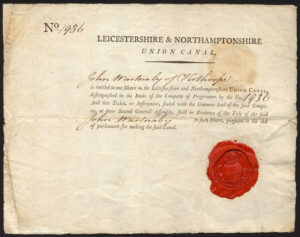 No. 1936
LEICESTERSHIRE & NORTHAMPTONSHIRE
UNION CANAL.
John Wartnaby of Clothorpe
is entitled to one Share in the Leicestershire and Northamptonshire UNION CANAL,
distinguished in the Books of the Company of Proprietors by the No. 1936
And this Ticket, or Instrument, sealed with the Common Seal of the said Company
at their Second General Assembly, shall be Evidence of the Title of the said
John Wartnaby to such Share, pursuant to the Act
of parliament for making the said Canal.